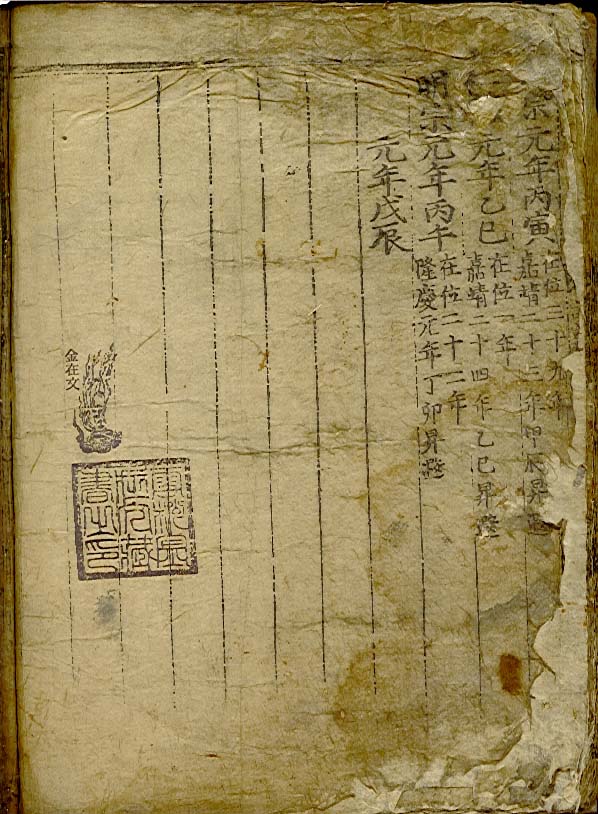 宗元年丙寅
在位三十九年
嘉靖二十三年甲辰昇遐
元年乙巳
在位一年
嘉靖二十四年乙巳昇遐
明宗元年丙午
在位二十二年
隆慶元年丁卯昇遐
元年戊辰
金在文
藏
書之印